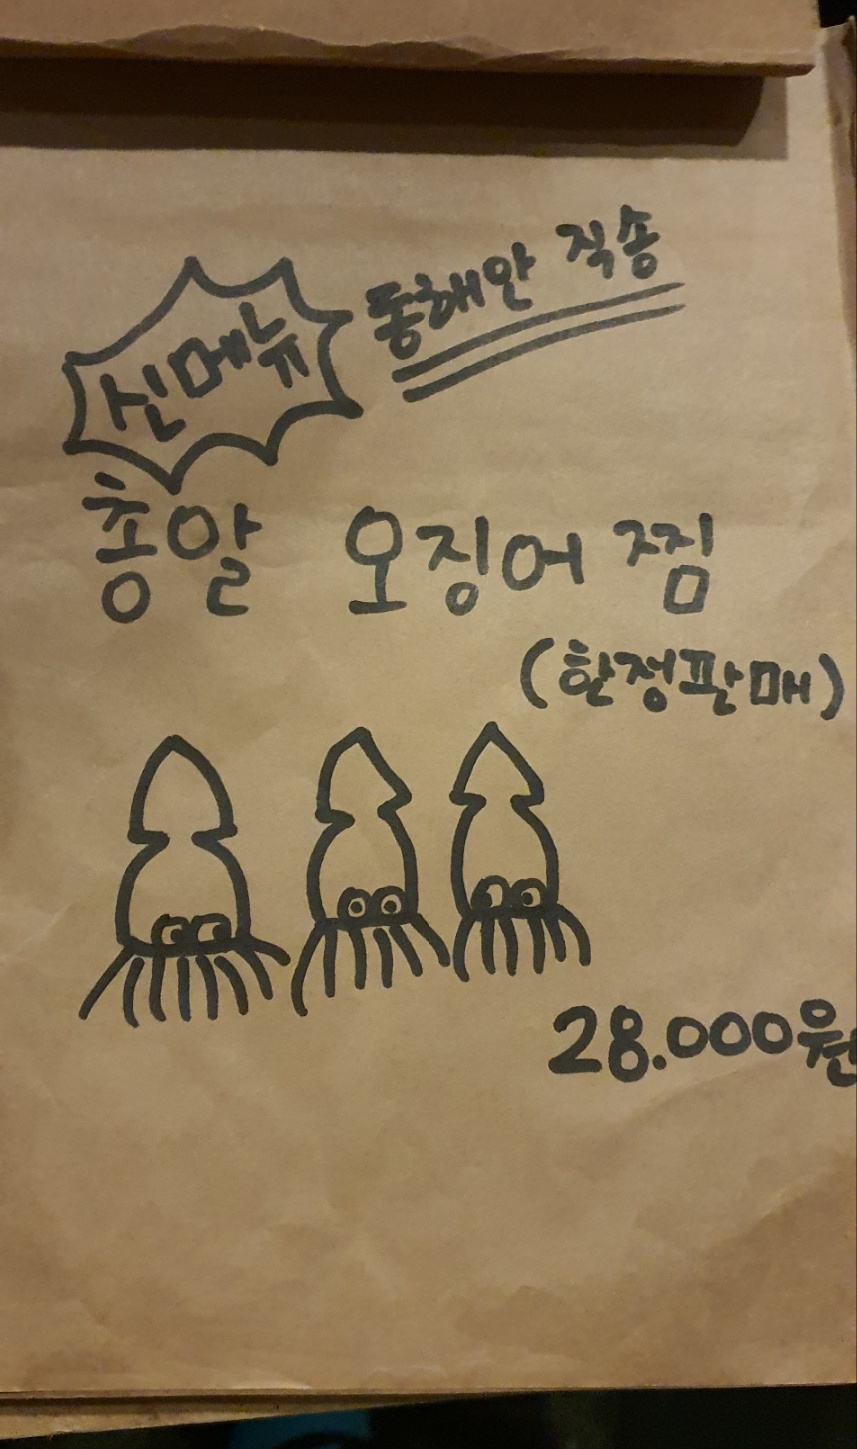 신메뉴
동해안 직송
총알 오징어 찜
(한정판매)
28.000원